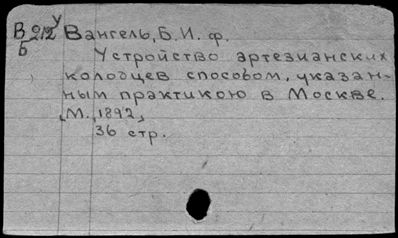 У
В 212 Вангель, Б. И. ф.
Б
Устройство артезианских
колодцев способом, указан-
ным практикою в Москве.
[М., 1892]
36 стр.